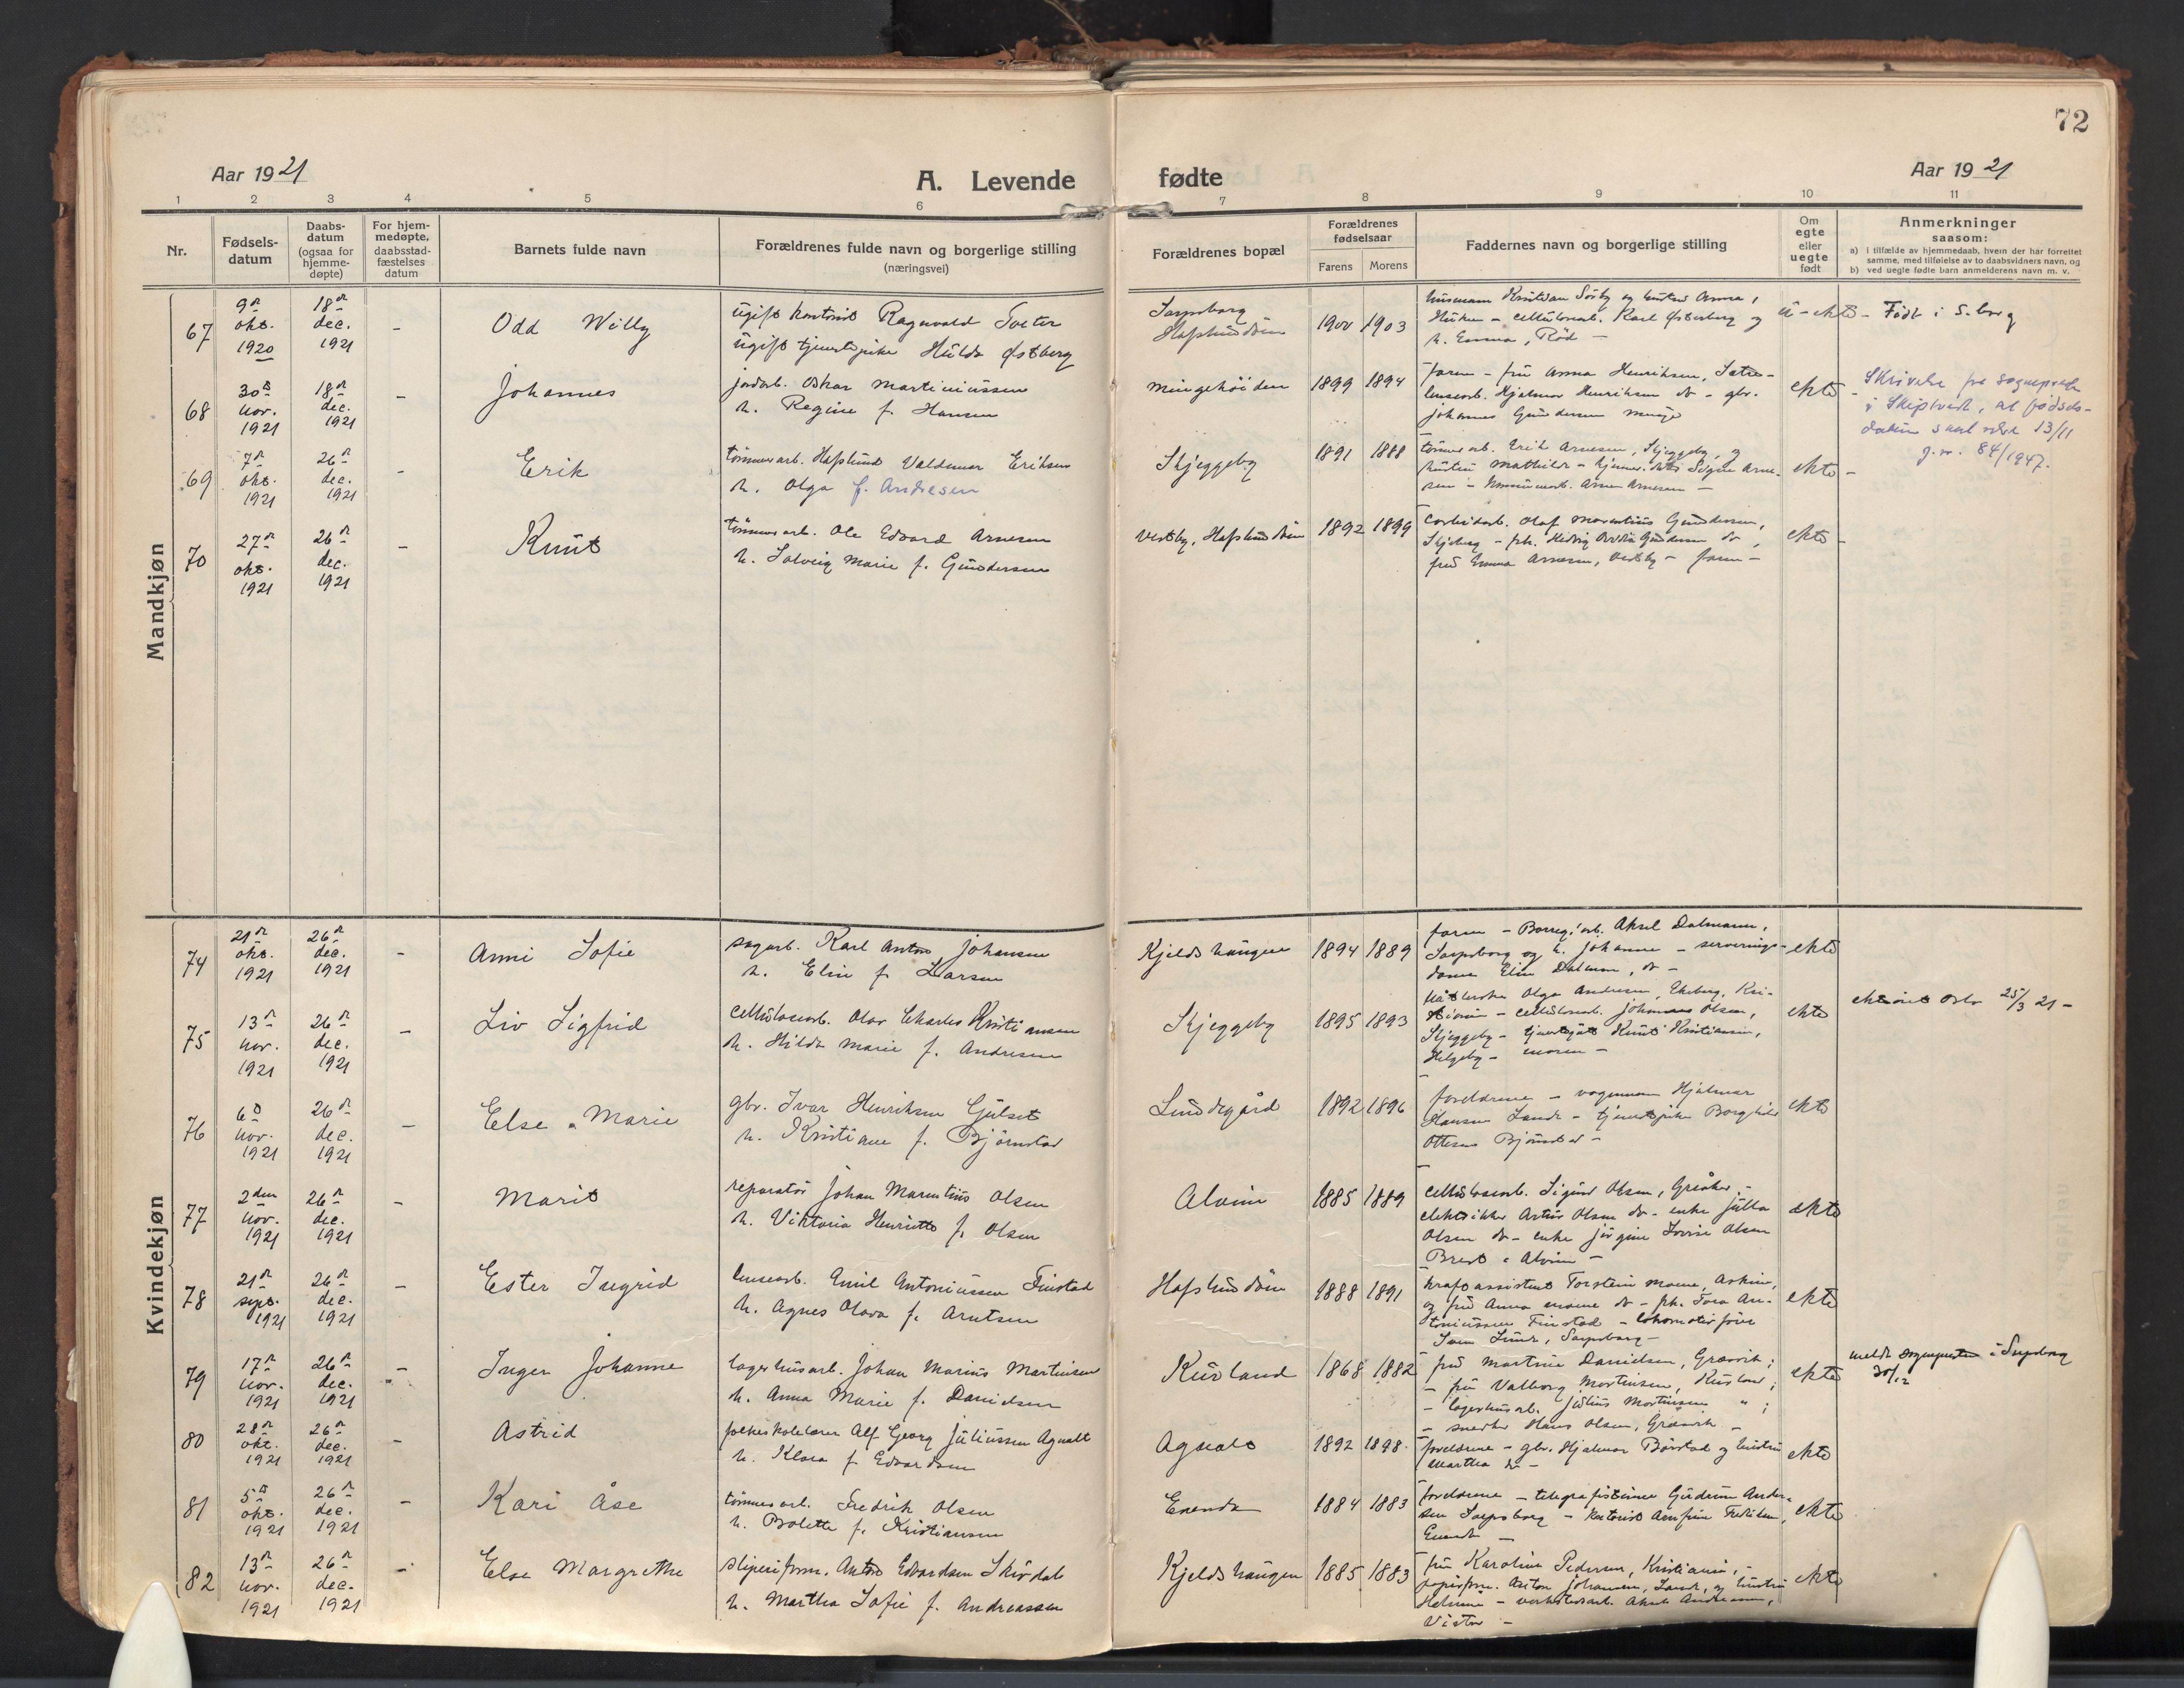 72
Aar 1921
A. Levende
fødte
Aar 1921
1 2 3 4 5 6 7 8 9 10 11
Nr.
Fødsels-
datum
Daabs-
datum
(ogsaa for
hjemme-
døpte)
For hjem-
medøpte,
daabsstad-
fæstelses
datum
Barnets fulde navn
Forældrenes fulde navn og borgerlige stilling
(næringsvei)
Forældrenes bopæl
Forældrenes
fødselsaar
Farens Morens
Faddernes navn og borgerlige stilling
Om
egte
eller
uegte
født
Anmerkninger
saasom:
a) i tilfælde av hjemmedaab, hvem der har forrettet
samme, med tilføielse av to daabsvidners navn, og
b) ved uegte fødte barn anmelderens navn m. v.
Mandkjøn
67
9de okt. 1920
18de dec. 1921
-
Odd Willy
ugift kontorist Ragnvald Sæter
ugift tjenestepike Hulda Østberg
Sarpsborg
Hafslundsøen
1900 1903
husmann Kristian Sørby og hustru Anna,
- cellulosearb. Karl Østerberg og
h. Emma, Rød -
u-ekte -
Født i S.borg
68
30te nov. 1921
18de dec. 1921
-
Johannes
jordarb. Oskar Martiniussen
h. Regine f. Hansen
Mingehöiden
1899 1894
faren - fru Anna Henriksen,
lensearb. Hjalmar Henriksen do - gbr.
Johannes Gundersen Minge
ekte -
Skrivelse fra sogneprest
i Skiptvedt, at fødsels-
datum skal være 13/11
j.nr. 84/1947.
69
7de okt. 1921
26de dec. 1921
-
Erik
tømmerarb. Hafslund Valdemar Eriksen
h. Olga f. Andresen
Skjeggeby
1891 1888
tømmerarb. Erik Arnesen, Skjeggeby, og
hustru Mathilde - Signe Arne-
sen - tømmerarb. Arne Arnesen -
ekte -
70
27de okt. 1921
26de dec. 1921
-
Knut
tømmerarb. Ole Edvard Arnesen
h. Solveig Marie f. Gundersen
Vestby, Hafslundsøen
1892 1899
carbidarb. Olaf Marentius Gundersen,
Skjeberg - frk. Hedvig Gundersen do,
fru Emma Arnesen, Vestby - faren -
ekte -
Kvindekjøn
74
21de okt. 1921
26de dec. 1921
-
Anni Sofie
sagarb. Karl Anton Johansen
h. Elin f. Larsen
Kjeldshaugen
1894 1889
faren - Borreg.arb. Aksel Dalmann,
Sarpsborg og h. Johanne - serverings-
dame Elin Dalmann, do -
ekte
75
13de nov. 1921
26de dec. 1921
-
Liv Sigfrid
cellulosearb. Olav Charles Kristiansen
h. Hilda Marie f. Andresen
Skjeggeby
1895 1893
Olga Andresen, Ekeberg, Kri-
stiania - cellulosearb. Johannes Olsen,
Skjeggeby - tjenestegutt Knut Kristiansen,
Helgeby - moren -
ekte
Oslo 25/3 21 -
76
6te nov. 1921
26de dec. 1921
-
Else Marie
gbr. Ivar Henriksen Gulset
h. Kristiane f. Bjørnstad
Lundegård
1892 1896
foreldrene - vognmann Hjalmar
Hansen Sande - tjenestepike Borghild
Ottesen Bjørnstad -
ekte
77
2den nov. 1921
26de dec. 1921
-
Marit
reparatør Johan Marentius Olsen
h. Viktoria Henriette f. Olsen
Alvim
1885 1889
cellulosearb. Sigurd Olsen, Greåker, -
elektriker Artur Olsen do - enke Julla
Olsen do - enke Jørgine Lovise Olsen
Brevd Alvim -
ekte
78
21de sept. 1921
26de dec. 1921
-
Ester Ingrid
lensearb. Emil Antoniussen Finstad
h. Agnes Olava f. Arntsen
Hafslundsøen
1888 1891
kraftassistent Torstein Moene, Askim,
og fru Anna Moene do - frk. Tora An-
toniussen Finstad - lokomotivfører
Sven Lund, Sarpsborg -
ekte
79
17de nov. 1921
26de dec. 1921
-
Inger Johanne
lagerhusarb. Johan Marius Martinsen
h. Anna Marie f. Danielsen
Kurland
1868 1882
fru Martine Danielsen, Greåvik;
- fru Valborg Martinsen, Kurland;
- lagerhusarb. Julius Martinsen " ;
- snedker Hans Olsen, Greåvik -
ekte
meldt sognepresten i Sarpsborg
30/12
80
28de okt. 1921
26de dec. 1921
-
Astrid
folkeskolelærer Alf Georg Juliussen Agnalt
h. Klara f. Edvardsen
Agnalt
1892 1898
foreldrene - gbr. Hjalmar Børstad og hustru
Martha do -
ekte
81
5te okt. 1921
26de dec. 1921
-
Kari Åse
tømmerarb. Fredrik Olsen
h. Bolette f. Kristiansen
Enende
1884 1883
foreldrene - telegrafistinne Gudrun Ander-
sen Sarpsborg - kontorist Arnfinn Fredriksen,
Enende -
ekte
82
13de nov. 1921
26de dec. 1921
-
Else Margrethe
sliperiform. Anton Edvardsen Skivdal
h. Martha Sofie f. Andreassen
Kjeldshaugen
1885 1883
fru Karoline Pedersen, Kristiania, -
papirform. Anton Johansen, Sande, og hustru
Helmine - verkstedsarb. Aksel Andreassen,
Vister -
ekte